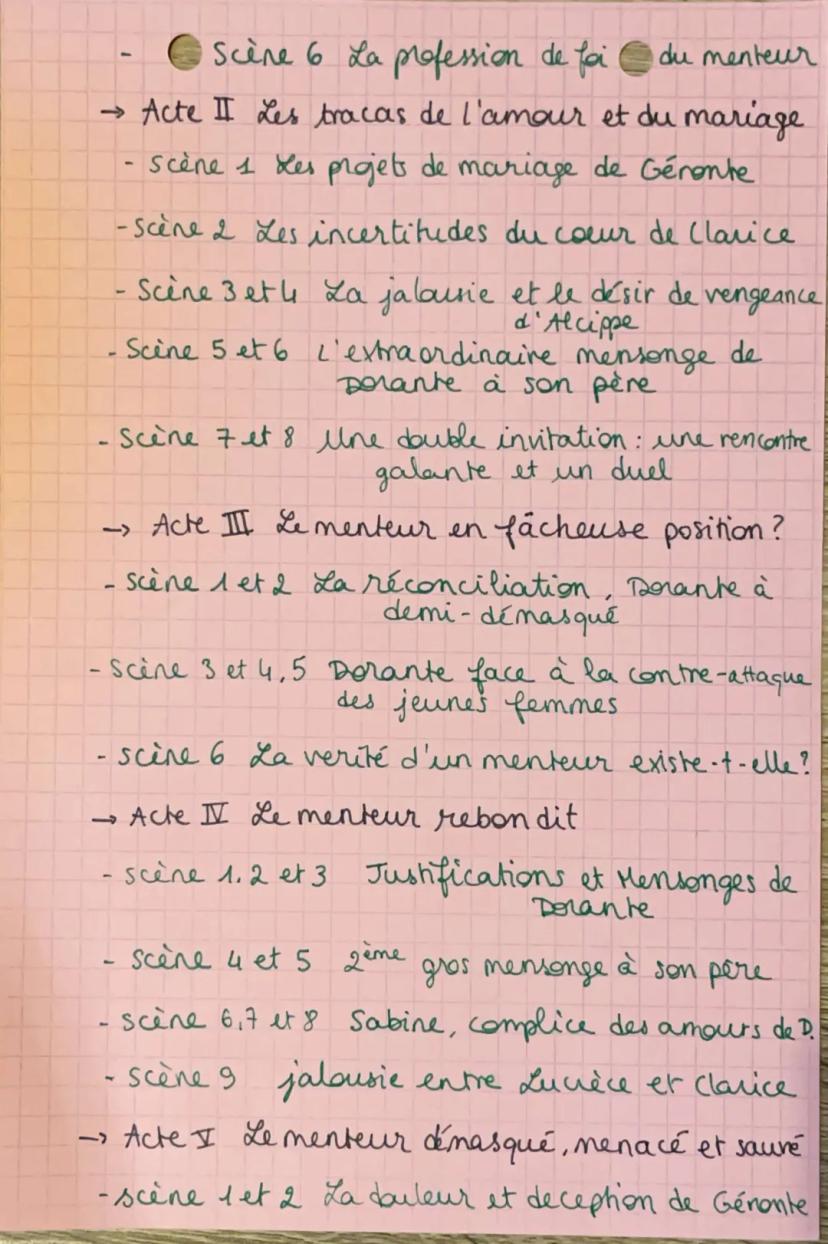 - Scène 6 La profession de foi du menteur
→ Acte II Les tracas de l'amour et du mariage
- Scène 1 Les projets de mariage de Géronte
- Scène 2 Les incertitudes du cœur de Clarice
- Scène 3 et 4 La jalousie et le désir de vengeance
d'Alcippe
- Scène 5 et 6 L'extraordinaire mensonge de
Dorante à son père
- Scène 7 et 8 Une double invitation : une rencontre
galante et un duel
→ Acte III Le menteur en fâcheuse position ?
- Scène 1 et 2 La réconciliation, Dorante à
demi-démasqué
- Scène 3 et 4,5 Dorante face à la contre-attaque
des jeunes femmes
- scène 6 La verité d'un menteur existe-t-elle ?
→ Acte IV Le menteur rebondit
- scène 1. 2 et 3 Justifications et Mensonges de
Dorante
- scène 4 et 5 2ème gros mensonge à son père
- scène 6,7 et 8 Sabine, complice des amours de D.
- scène 9 jalousie entre Lucrèce et Clarice
→ Acte V Le menteur démasqué, menacé et sauvé
- scène 1 et 2 La douleur et deception de Géronte